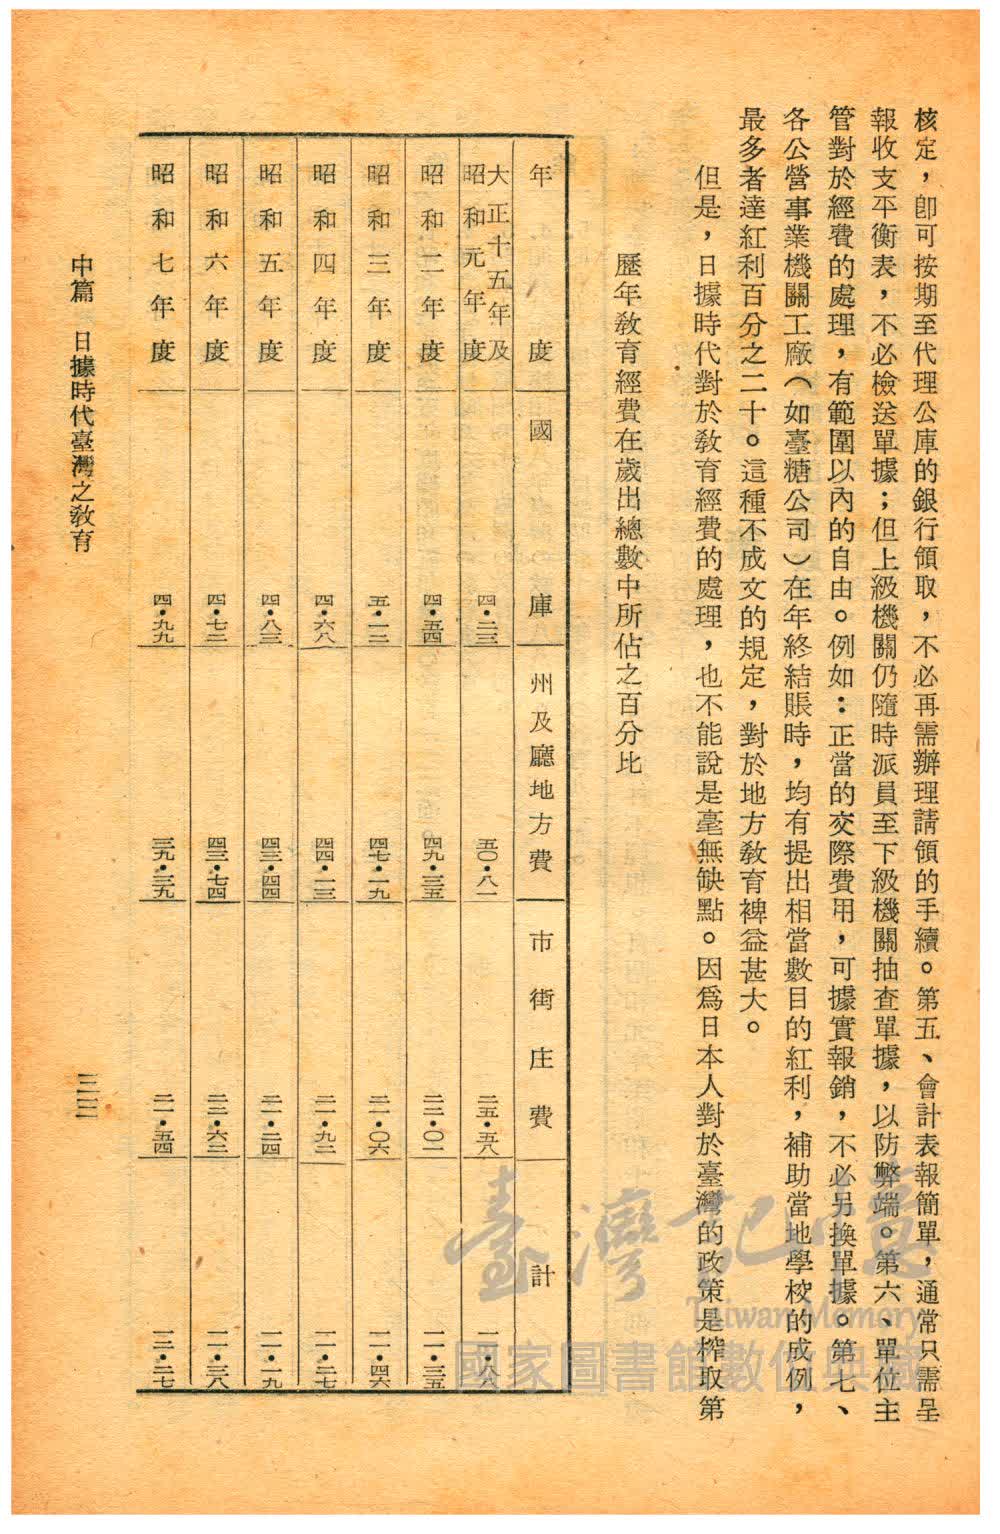 核定，卽可按期至代理公庫的銀行領取，不必再需辦理請領的手續。第五、會計表報簡單，通常只需呈
報收支平衡表，不必檢送單據；但上級機關仍隨時派員至下級機關抽查單據，以防弊端。第六、單位主
管對於經費的處理，有範圍以內的自由。例如：正當的交際費用，可據實報銷，不必另換單據。第七、
各公營事業機關工廠（如臺糖公司）在年終結賬時，均有提出相當數目的紅利，補助當地學校的成例，
最多者達紅利百分之二十。這種不成文的規定，對於地方敎育裨益甚大。
但是，日據時代對於敎育經費的處理，也不能說是毫無缺點。因爲日本人對於臺灣的政策是榨取第
歷年敎育經費在歲出總數中所佔之百分比
年度 國庫 州及廳地方費 市街庄費 計
大正十五年及昭和元年度 四・二三 五〇・八一 二五・五八 一一・八六
昭和二年度 四・五四 四九・三五 二二・〇一 一一・三五
昭和三年度 五・一二 四七・一九 二一・〇六 一一・四六
昭和四年度 四・六八 四四・二三 二一・九二 一一・二七
昭和五年度 四・八三 四三・四四 二一・二四 一一・一九
昭和六年度 四・七二 四三・七四 二二・六三 一一・三八
昭和七年度 四・九九 三九・三九 二一・五四 一二・二七
中篇 日據時代臺灣之敎育
三三
臺灣記憶
Taiwan Memory
國家圖書館數位典藏